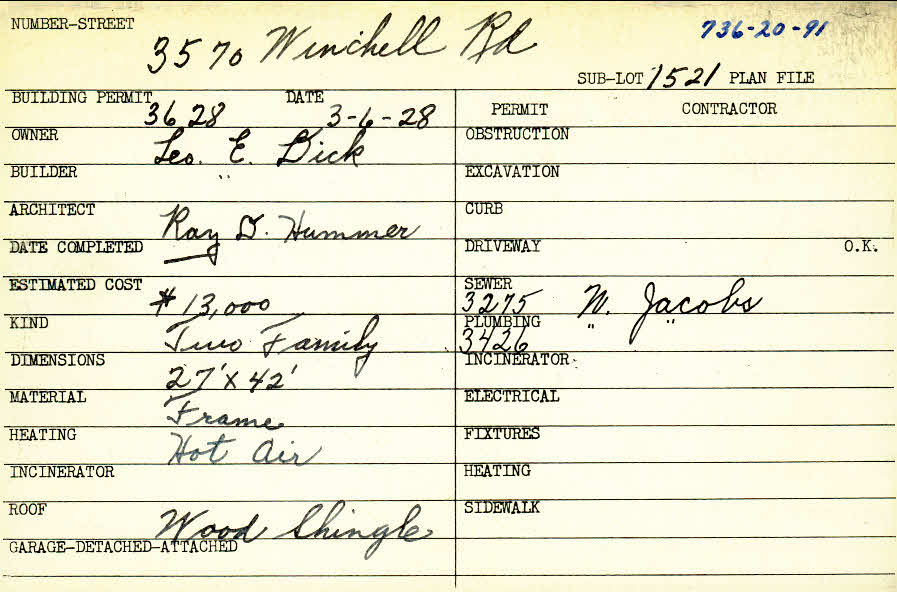 NUMBER-STREET
3570 Winchell Rd
736-20-91
SUB-LOT 1521 PLAN FILE
BUILDING PERMIT 3628 DATE 3-6-28
OWNER Leo. E. Dick
BUILDER " 
ARCHITECT Ray D. Hummer
DATE COMPLETED
ESTIMATED COST $13,000
KIND Two Family
DIMENSIONS 27' X 42'
MATERIAL Frame
HEATING Hot Air
INCINERATOR
ROOF Wood Shingle
GARAGE-DETACHED-ATTACHED
PERMIT CONTRACTOR
OBSTRUCTION
EXCAVATION
CURB
DRIVEWAY O.K.
SEWER 3275 N. Jacobs
PLUMBING 3426 " "
INCINERATOR
ELECTRICAL
FIXTURES
HEATING
SIDEWALK